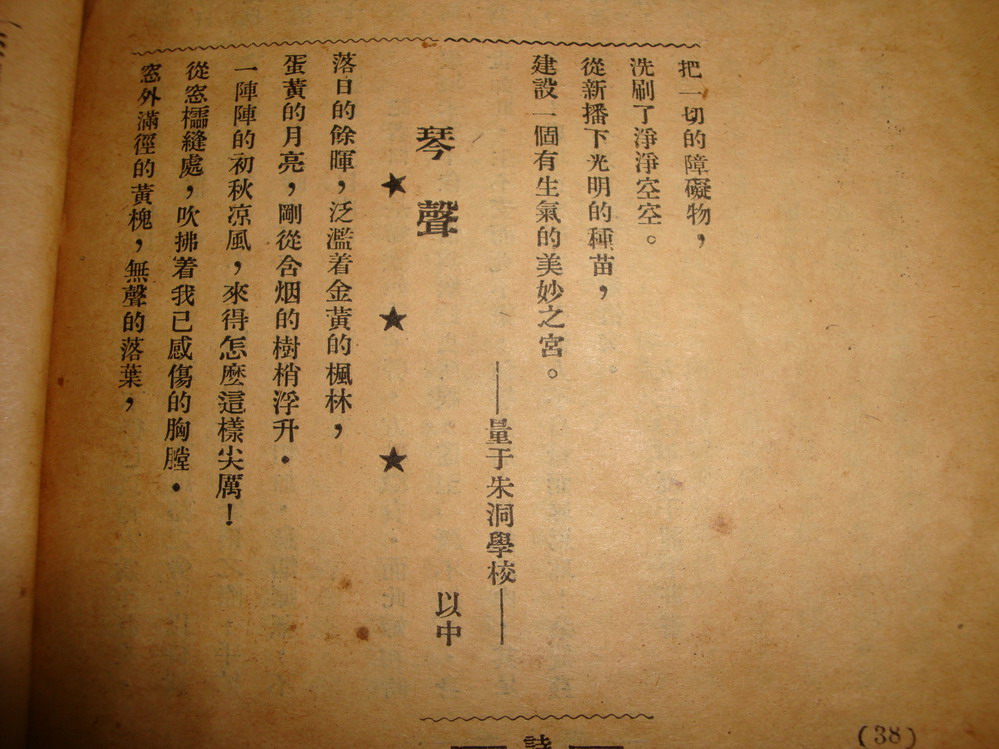 把一切的障礙物，
洗刷了淨淨空空。
從新播下光明的種苗，
建設一個有生氣的美妙之宮。
——量于朱洞學校——
琴聲 以中
★ ★ ★
落日的餘暉，泛濫着金黃的楓林，
蛋黃的月亮，剛從含烟的樹梢浮升．
一陣陣的初秋凉風，來得怎麽這樣尖厲！
從窓檽縫處，吹拂着我已感傷的胸膛．
窓外滿徑的黃槐，無聲的落葉，
詩
(38)